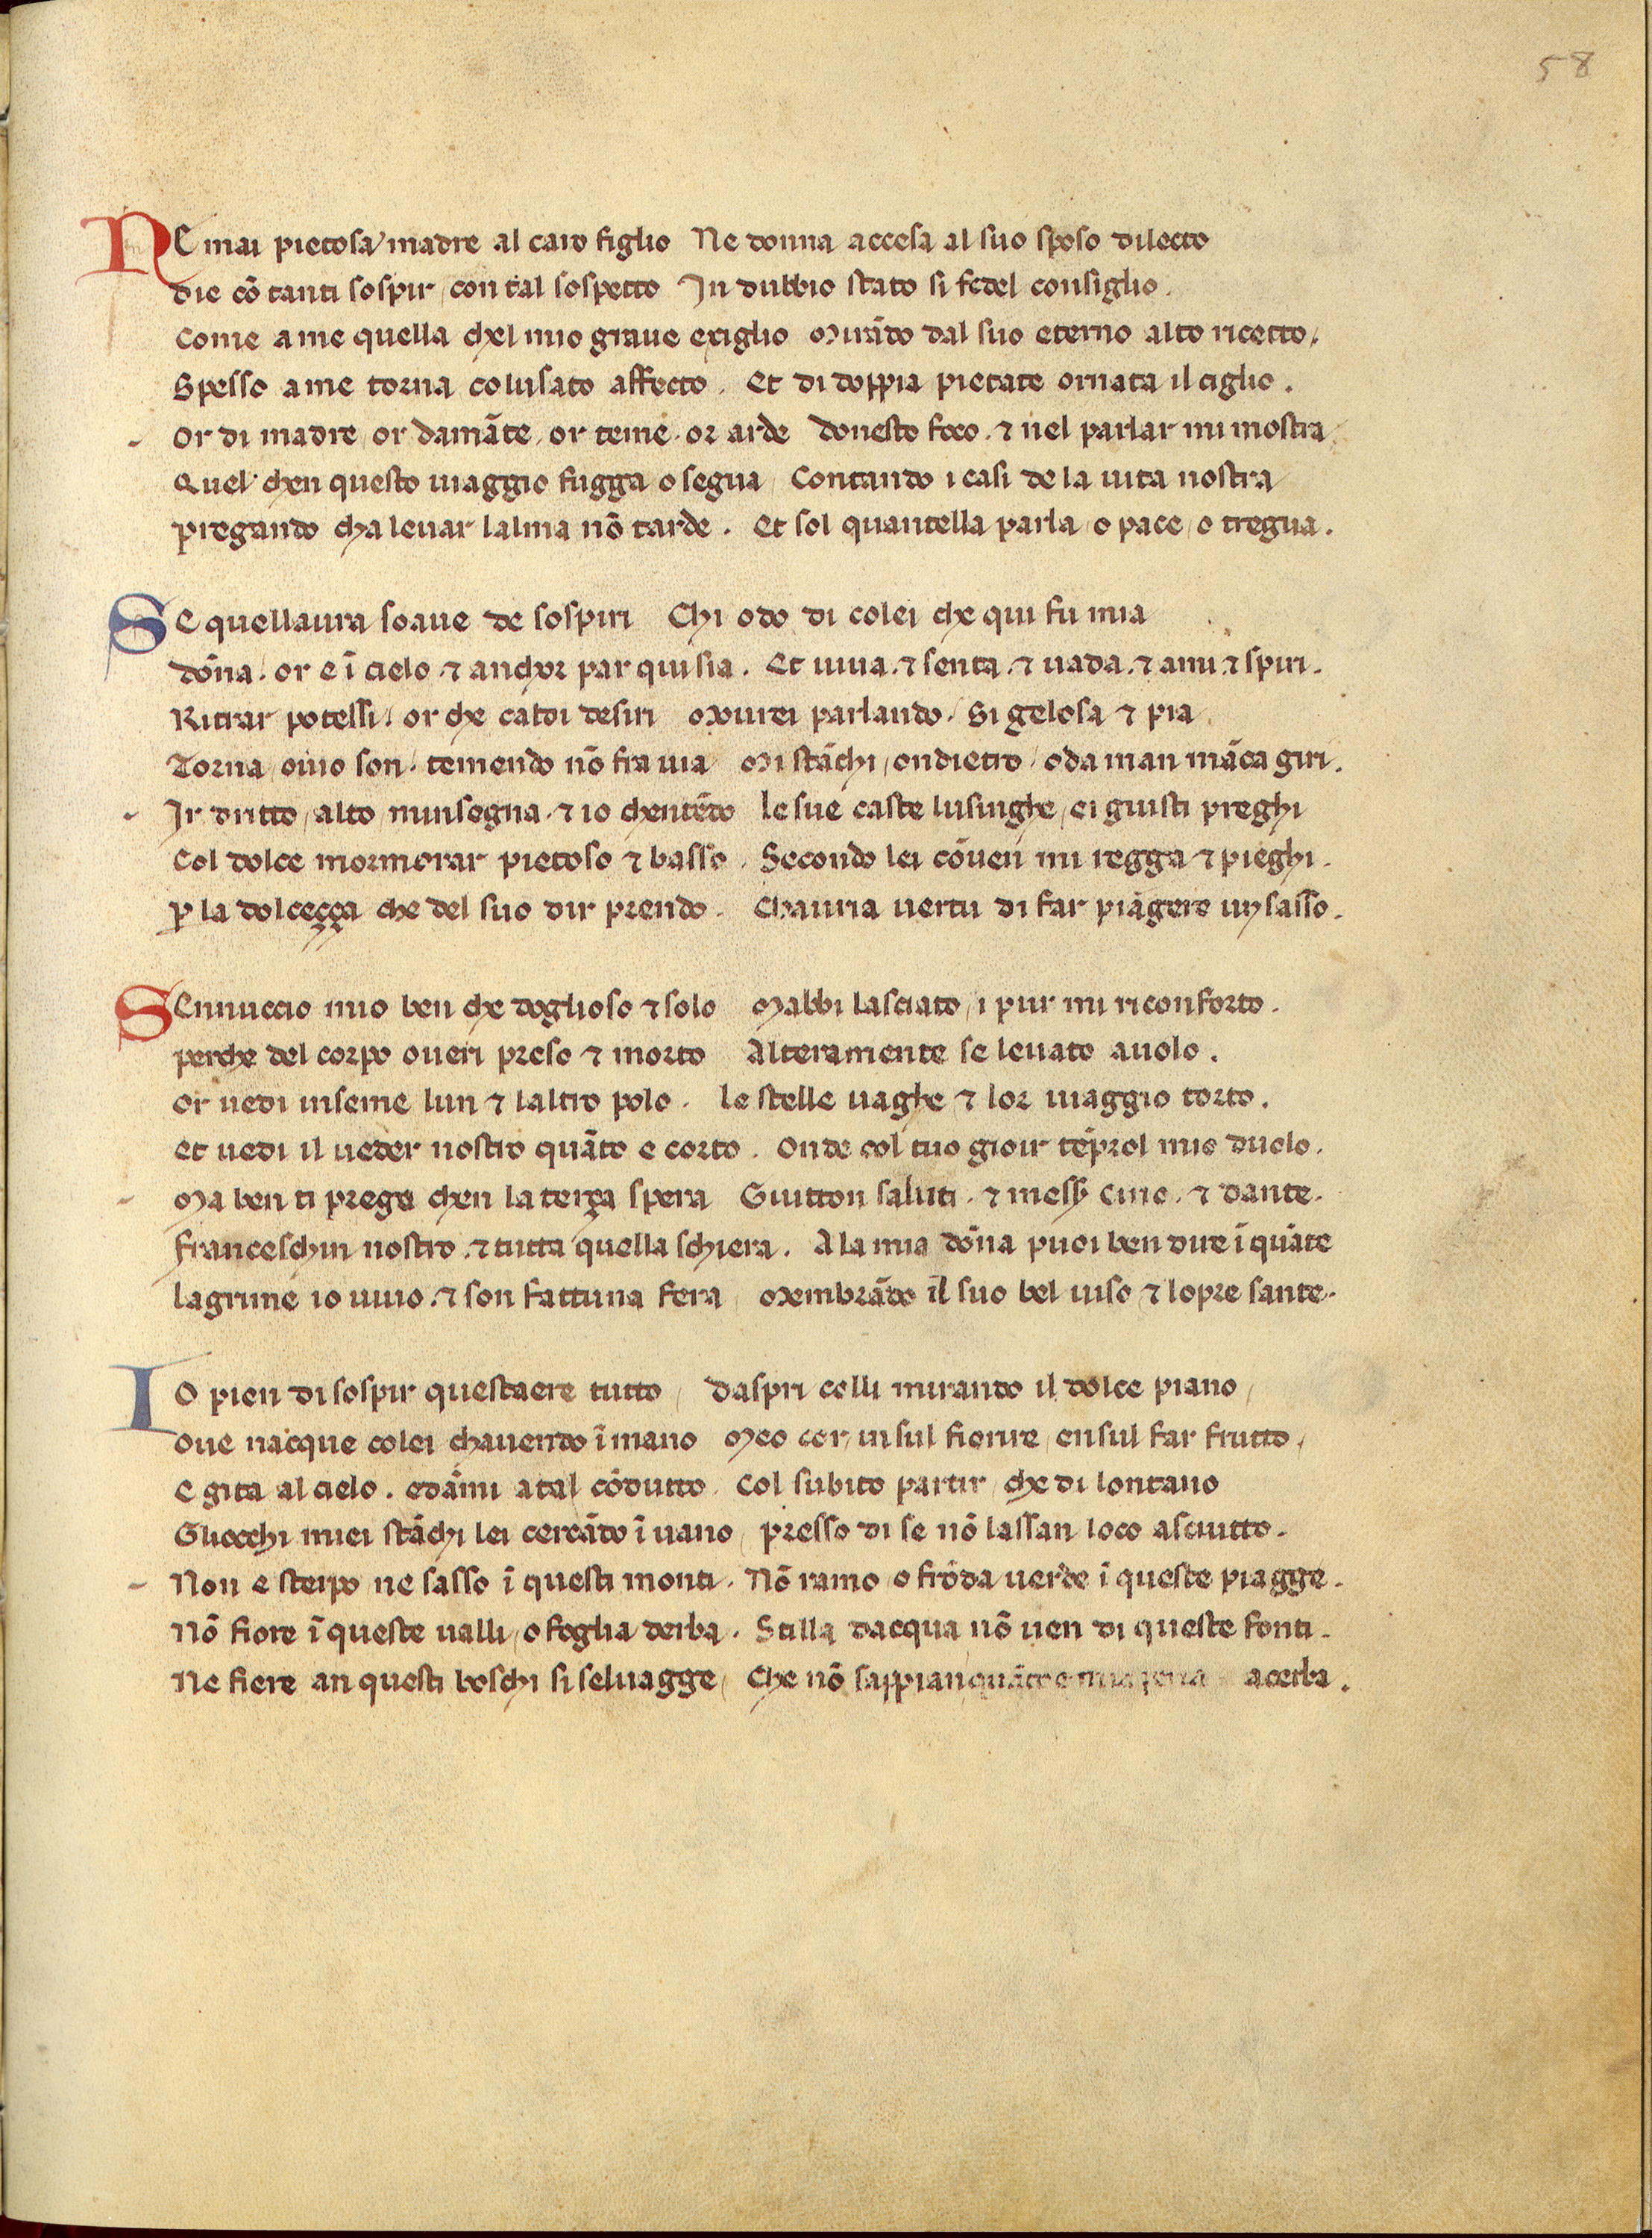 58
NE mai pietosa madre al caro figlio Ne donna accesa al suo sposo dilecto
die cō tanti sospir / con tal sospetto In dubbio stato si fedel consiglio.
Come a me quella chel mio graue exiglio Mirādo dal suo eterno alto ricetto /
Spesso a me torna colusato affecto. Et di doppia pietate ornata il ciglio.
Or di madre / or damāte / or teme . or arde donesto foco . ⁊ nel parlar mi mostra
Quel chen questo uiaggio fugga o segua / Contando i casi de la uita nostra /
pregando cha leuar lalma nō tarde. Et sol quantella parla / o pace / o tregua.
SE quellaura soaue de sospiri Chi odo di colei che qui fu mia
dōna / or e ī cielo . ⁊ anchor par qui sia. Et uiua . ⁊ senta . ⁊ uada . ⁊ ami . ⁊ spiri.
Ritrar potessi / or che caldi desiri Mourei parlando / Si gelosa ⁊ pia
Torna / ouio son / temendo nō fra uia Mi stāchi / ondietro / o da man māca giri.
Ir dritto / alto / minsegna . ⁊ io chentēdo le sue caste lusinghe / ei giusti preghi
Col dolce mormorar pietoso ⁊ basso . Secondo lei cōuen mi regga ⁊ pieghi.
ꝑ la dolceçça che del suo dir prendo . Chauria uertu di far piāgere un sasso.
SEnnuccio mio ben che doglioso ⁊ solo Mabbi lasciato / i pur mi riconforto.
perche del corpo oueri preso ⁊ morto Alteramente se leuato a uolo.
Or uedi inseme lun ⁊ laltro polo . le stelle uaghe ⁊ lor uiaggio torto.
Et uedi il ueder nostro quāto e corto . Onde col tuo gioir tēprol mio duolo.
Ma ben ti prego chen la terça spera Guitton saluti . ⁊ mess̄ Cino . ⁊ dante.
franceschin nostro . ⁊ tutta quella schiera. A la mia dōna puoi ben dire ī quāte
lagrime io uiuo . ⁊ son fattuna fera / Membrādo il suo bel uiso ⁊ lopre sante.
IO pien di sospir questaere tutto / daspri colli mirando il dolce piano /
Oue nacque colei chauendo ī mano Meo cor / in sul fiorire / en sul far frutto /
E gita al cielo . edāmi a tal cōdutto . Col subito partir / che di lontano
Gliocchi miei stāchi lei cercādo ī uano / presso di se nō lassan loco asciutto.
Non e sterpo ne sasso ī questi monti . Nō ramo o frōda uerde ī queste piagge.
Nō fiore ī queste ualli / o foglia derba . Stilla dacqua nō uen di queste fonti.
Ne fiere an questi boschi si seluagge / Che nō sappian quāto e mia pena acerba.